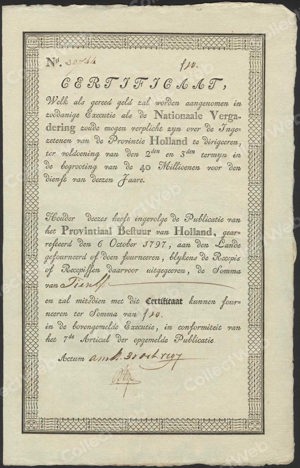 No.
ƒ10.
CERTIFICAAT,
Welk als gereed geld zal worden aangenomen in
zoodanige Executie als de Nationaale Verga-
dering zoude mogen verpligt zyn over de Inge-
zetenen van de Provintie Holland te dirigeeren,
ter voldoening van den 2den en 3den termyn in
de begrooting van de 40 Millioenen voor den
dienst van deezen Jaare.
Houder deezes heeft ingevolge de Publicatie van
het Provintiaal Bestuur van Holland, gear-
resteerd den 6 October 1797, aan den Lande
gefourneerd of doen fourneeren, blykens de Recepis
of Recepissen daarvoor uitgegeeven, de Somma
van Tien
en zal mitsdien met dit Certificaat kunnen four-
neeren ter Somma van ƒ10.
in de bovengemelde Executie, in conformiteit van
het 7de Articul der opgemelde Publicatie
Actum 1797
CollectWeb